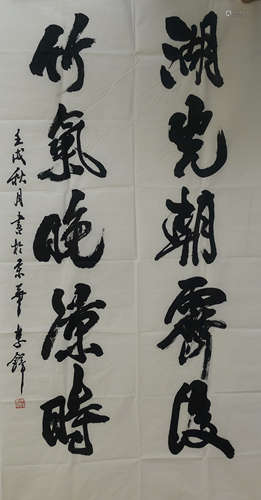 湖光朝霽後
竹氣晚涼時
壬戌秋月書於京華